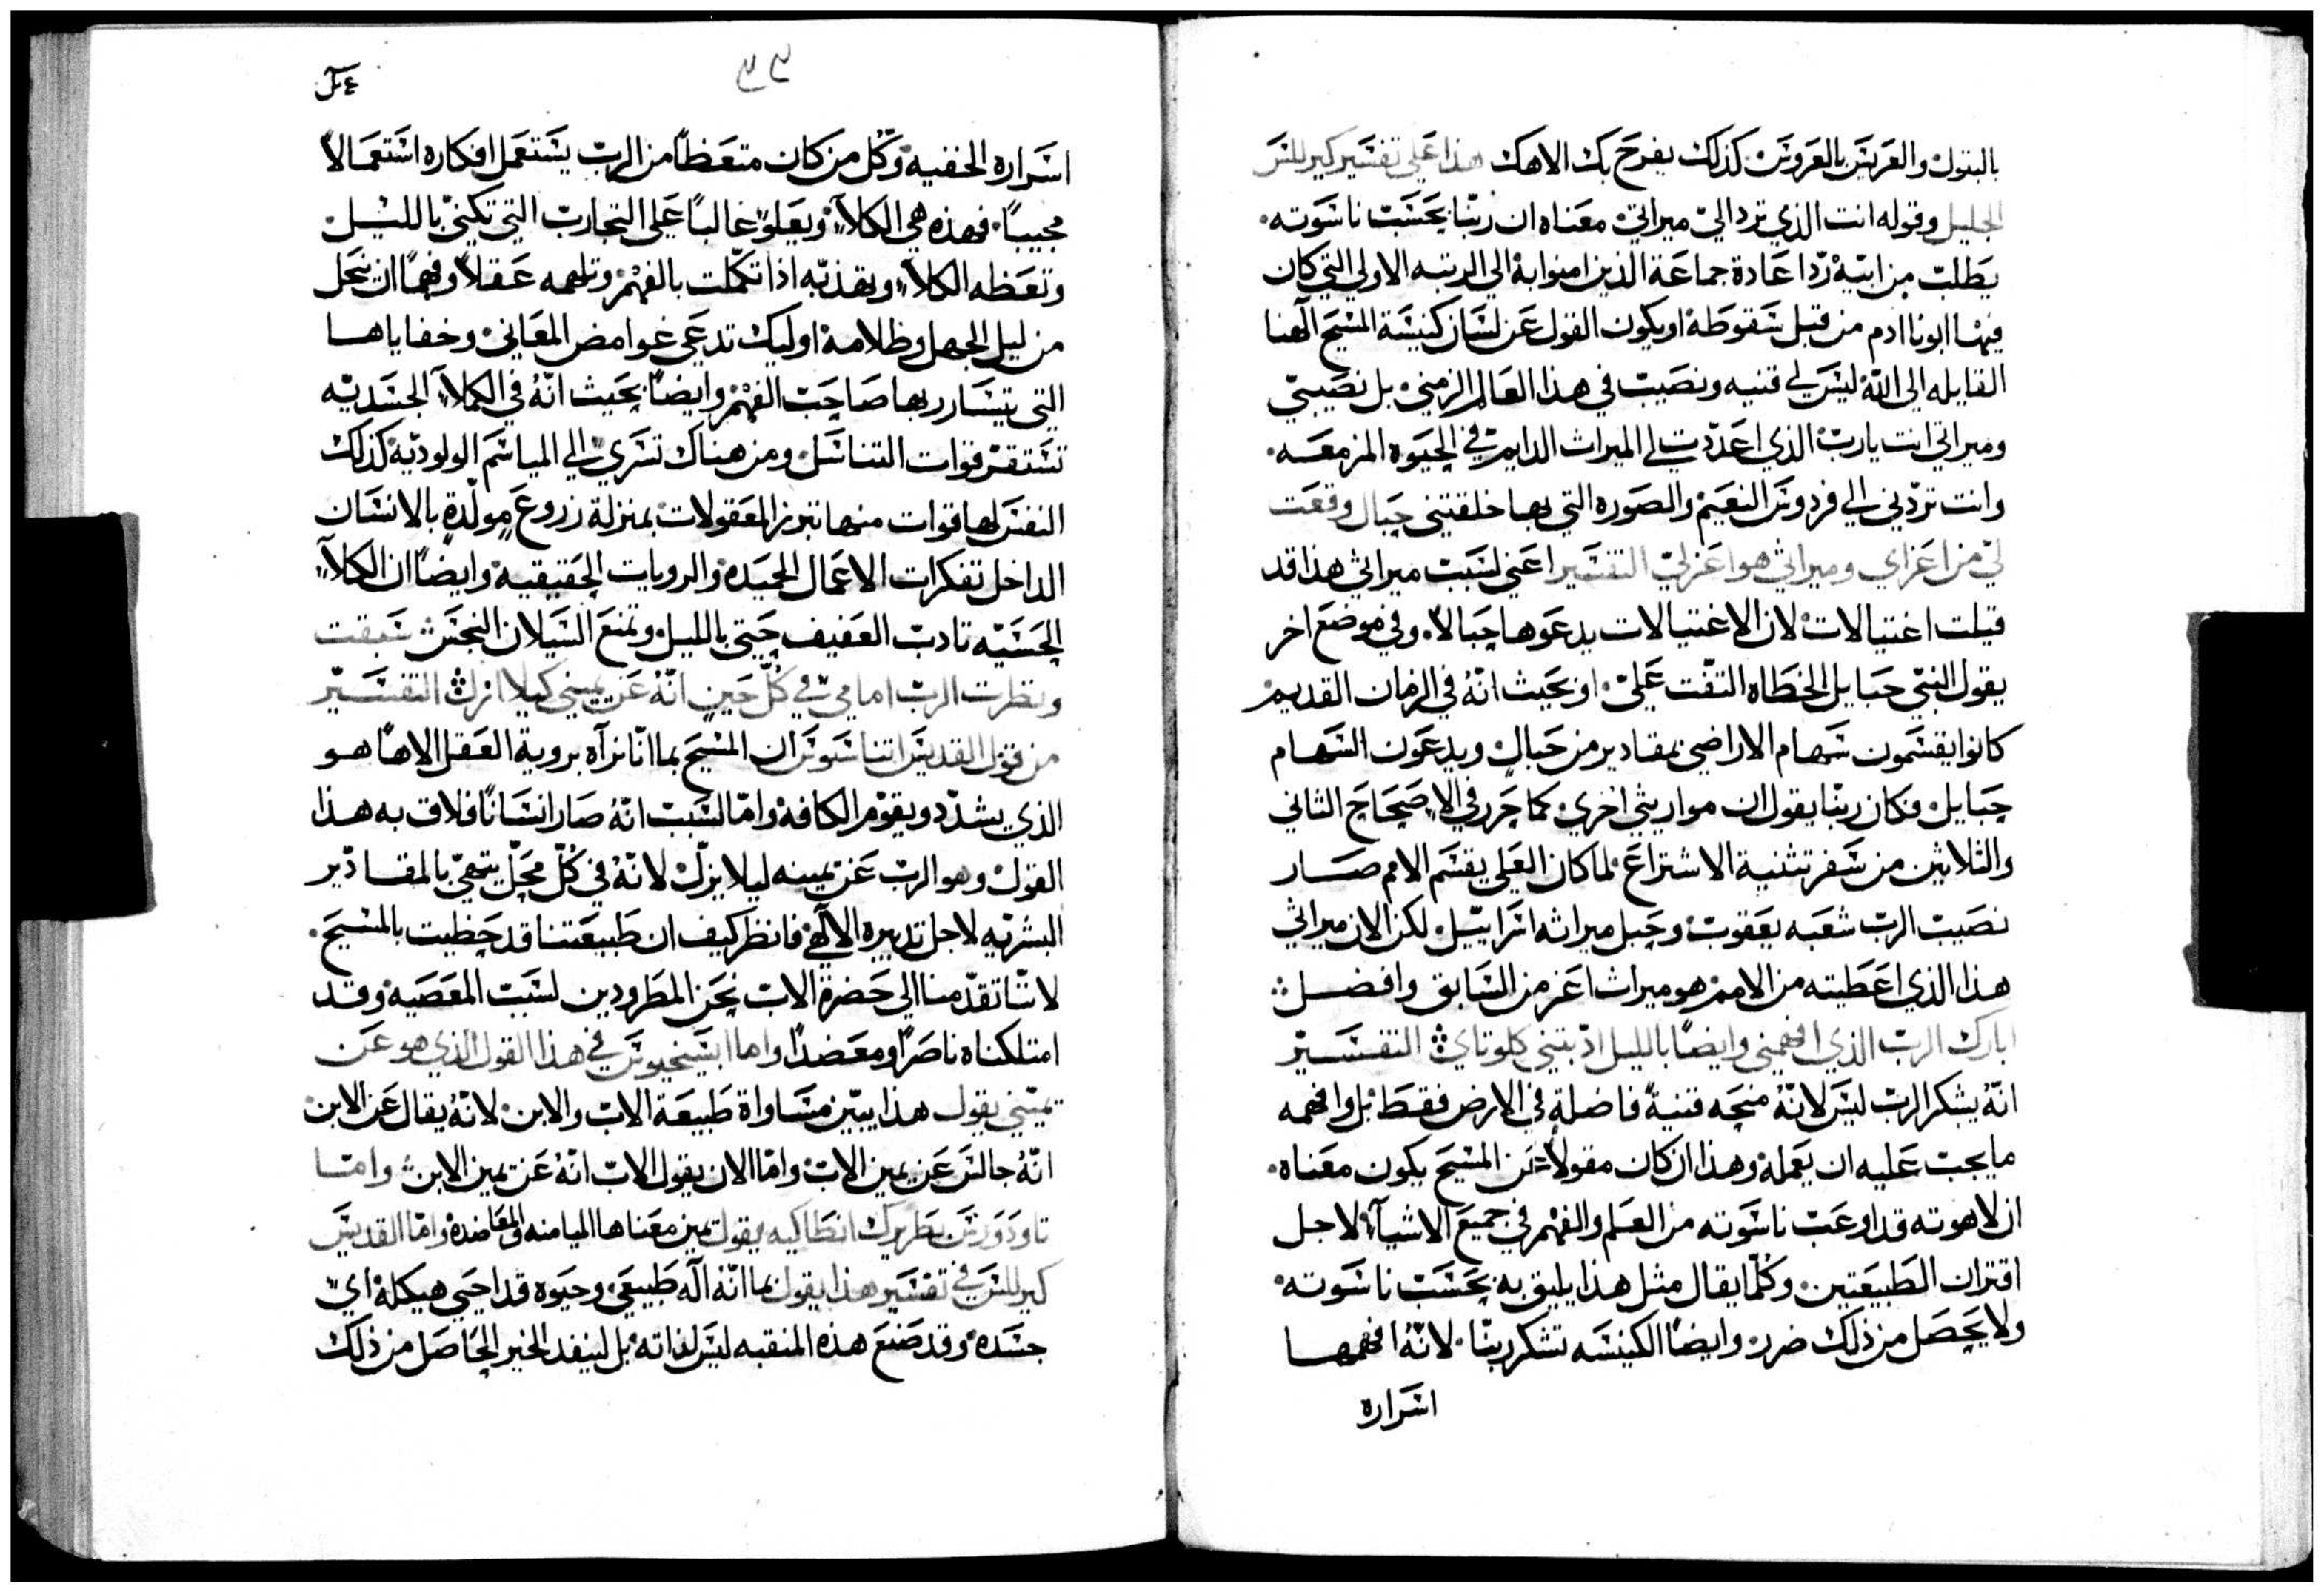 بالبتول والعريس بالعروس كذلك يفرح بك الاهك هذا على تفسير كيرللس
الجليل وقوله انت الذي ترد اليّ ميراتي معناه ان ربّنا بحسب ناسوته
يطلب من ابيه ردّ اعادة جماعة الذين امنوا به الي الرتبه الاولي التي كان
فيها ابونا ادم من قبل سقوطه او يكون القول عن لسان كنيسة المسيح آلهنا
القايله الى الله ليس لي قنيه ونصيب في هذا العالم الزمني بل نصيبي
وميراتي انت يارب الذي اعددت لي الميراث الدايم في الحيوه المزمعه
وانت تردّني الي فردوس النعيم والصوره التي بها خلقتني حبال وقعت
لي من اعزاي وميراثي هو اعز لي التفسير اعني لسبب ميراثي هذا قد
قبلت اغتيالات لان الاغتيالات يدعوها حبالاً وفي موضع اخر
يقول النبي حبايل الخطاه التفّت عليّ او بحيث انّه في الزمان القديم
كانوا يقسمون سهام الاراضي بمقادير من حبال ويدعون السهام
حبايل فكان ربنا يقول ان مواريثي اخري كما حرر في الاصحاح الثاني
والثلاثين من سفر تثنية الاشتراع لما كان العلي يقسم الامم صار
نصيب الرب شعبه يعقوب وحبل ميراثه اسراييل لكن الان ميراثي
هذا الذي اعطيته من الامم هو ميراث اعز من السابق وافضل
ابارك الرب الذي افهمني وايضاً بالليل ادّبتني كلوتاي التفسير
انّه يشكر الرب ليس لانّه منحه قنيةً فاضلةً في الارض فقط بل وافهمه
ما يجب عليه ان يعمله وهذا ان كان مقولاً عن المسيح يكون معناه
ان لاهوته قد اوعب ناسوته من العلم والفهم في جميع الاشيآ لاجل
اقتران الطبيعتين وكلّما يقال مثل هذا يليق به بحسب ناسوته
ولا يحصل من ذلك ضرر وايضاً الكنيسه تشكر ربنا لانّه افهمها
اسراره
٣٣
اسراره الخفيه وكل من كان متعظاً من الرب يستعمل افكاره استعمالاً
مجيباً فهذه هي الكلآ ويعلو غالباً على التجارب التي تكنيّ بالليل
وتعظه الكلآ وتهذبه اذا تكمّلت بالفهم وتلهمه عقلاً وفهماً ان نحل
من ليل الجهل وظلامه اوليك تدعي غوامض المعاني وخفاياها
التي يتسارر بها صاحب الفهم وايضاً بحيث انّه في الكلآ الجسديه
تستقر قوات التناسل ومن هناك تسري الي المياسم الولوديه كذلك
النفس لها قوات منها تبرز المعقولات بمنزلة زروع مولّدةٍ بالانسان
الداخل تفكرات الاعمال الحميده والرويات الحقيقيه وايضاً ان الكلآ
الحسيّه تادب العفيف حتى بالليل وتمنع السيلان النجس سبقت
ونظرت الرب امامي في كلّ حين انّه عن يميني كيلا ازل التفسير
من قول القديس اتناسيوس ان المسيح بما انّا نراه بروية العقل الاهاً هو
الذي يشدد ويقوّم الكافه وامّا لسبب انّه صار انساناً فلاق به هذا
القول وهو الرب عن يمينه ليلا يزل لانّه في كلّ محلّ يتمي بالمقادير
البشريه لاجل تدبيره الالهي فانظر كيف ان طبيعتنا قد حظيت بالمسيح
لاننا تقدّمنا الى حضرة الاب نحن المطرودين لسبب المعصيه وقد
امتلكناه ناصراً ومعضداً واما ايسيخيوس في هذا القول الذي هو عن
يميني يقول هذا يبيّن مساواة طبيعة الاب والابن لانّه يقال عن الابن
انّه جالس عن يمين الاب وامّا الان يقول الاب انّه عن يمين الابن وامّا
تاودورس بطريرك انطاكيه يقول يمين معناها الميامنه والمعاضده وامّا القديس
كيرللس في تفسير هذا يقول بما انّه اله طبيعي وحيوه قد احيي هيكله اي
جسده وقد صنع هذه المنقبه ليس لذاته بل لينفد الخير الحاصل من ذلك